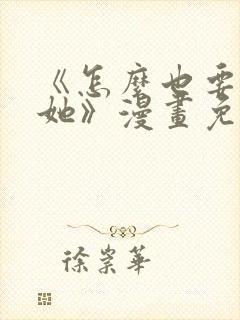 《怎麼也要
她》漫畫免
徐崇華